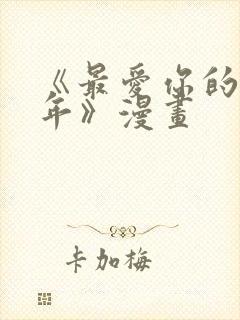 《最愛你的
年》漫畫
卡加梅